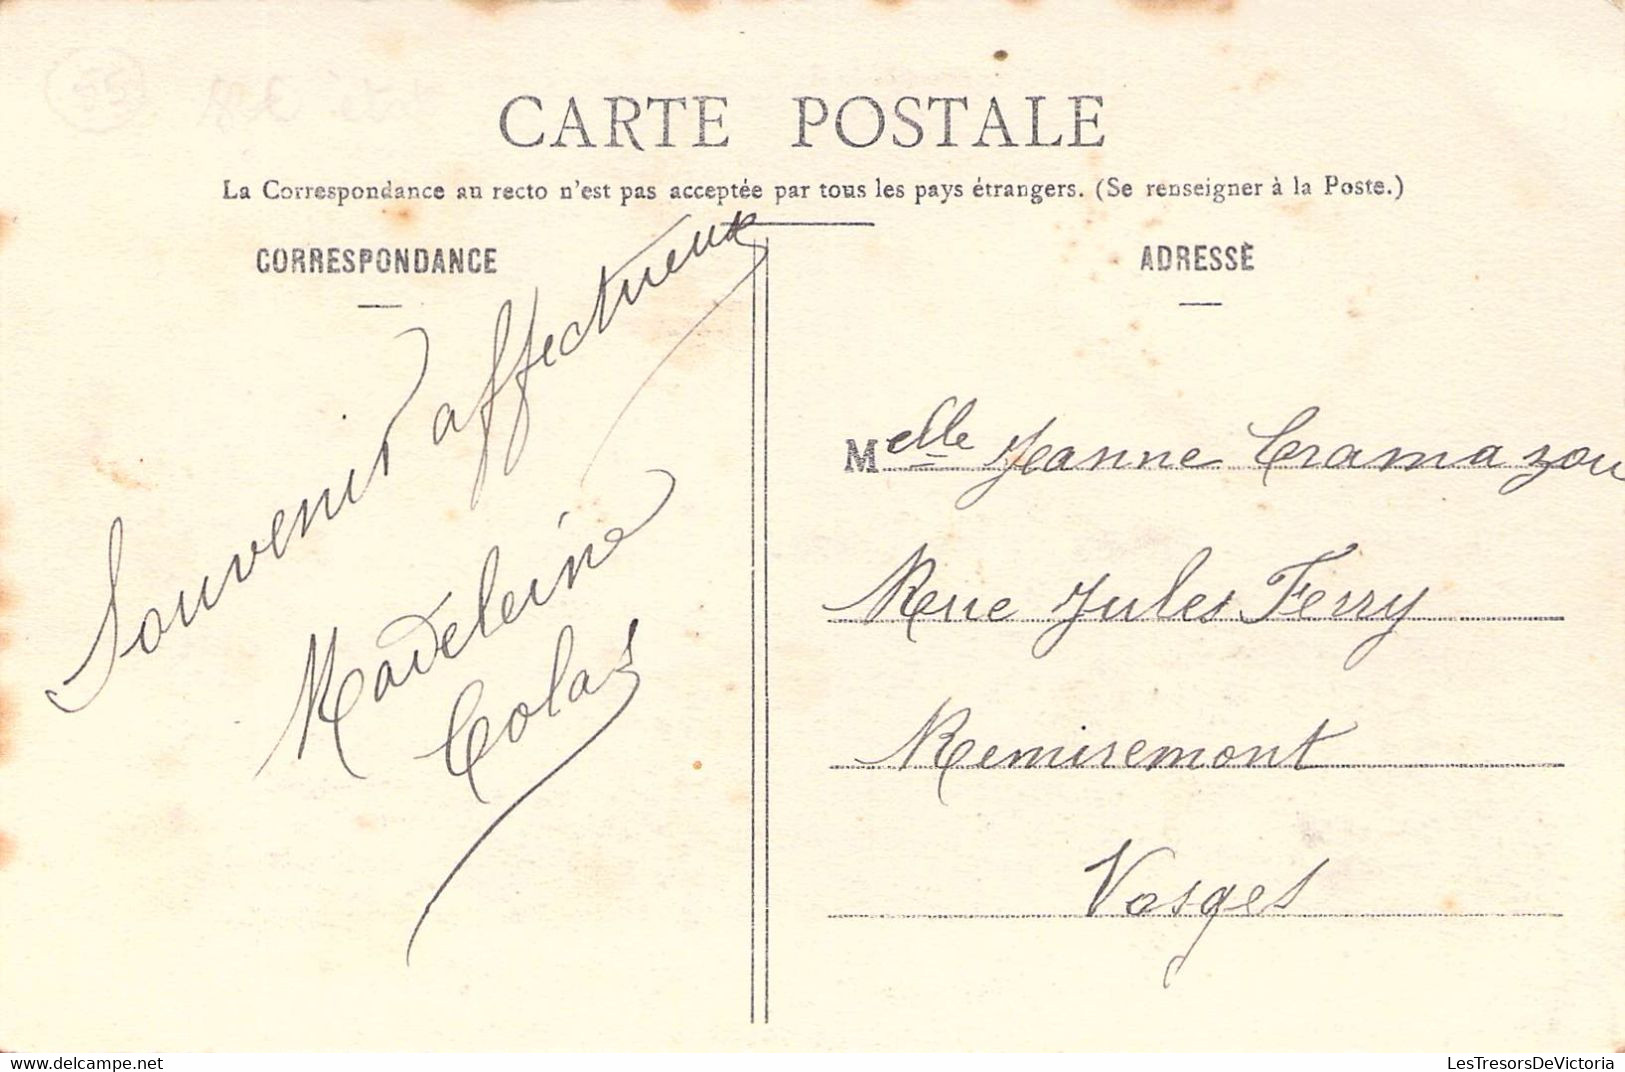 CARTE POSTALE
La Correspondance au recto n'est pas acceptée par tous les pays étrangers. (Se renseigner à la Poste.)
CORRESPONDANCE
Souvenir affectueux
Madeleine
Colas
ADRESSE
Melle Jeanne Cramazou
Rue Jules Ferry
Remiremont
Vosges
delcampe.net
LesTresorsDeVictoria